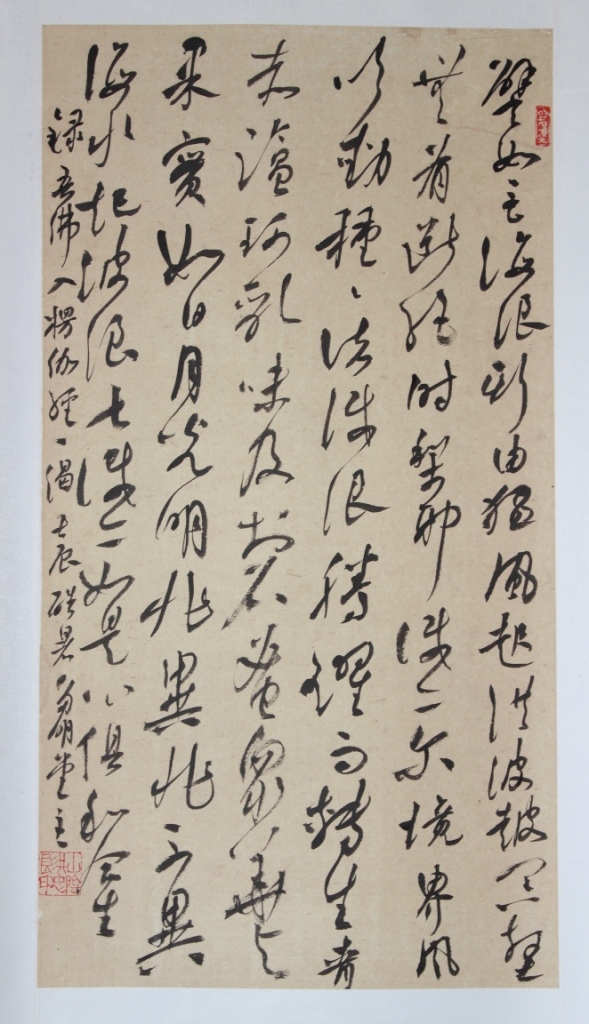 譬如巨海浪斯由猛風起洪波鼓冥壑
無有斷絕時梨耶識亦爾境界風
吹動種種諸識浪騰躍而轉生青
赤鹽珂乳味及於石蜜眾華與
果實如日月光明非異非不異
海水起波浪七識亦如是心俱和合生
錄吾佛入楞伽經一偈壬辰酷暑堂主